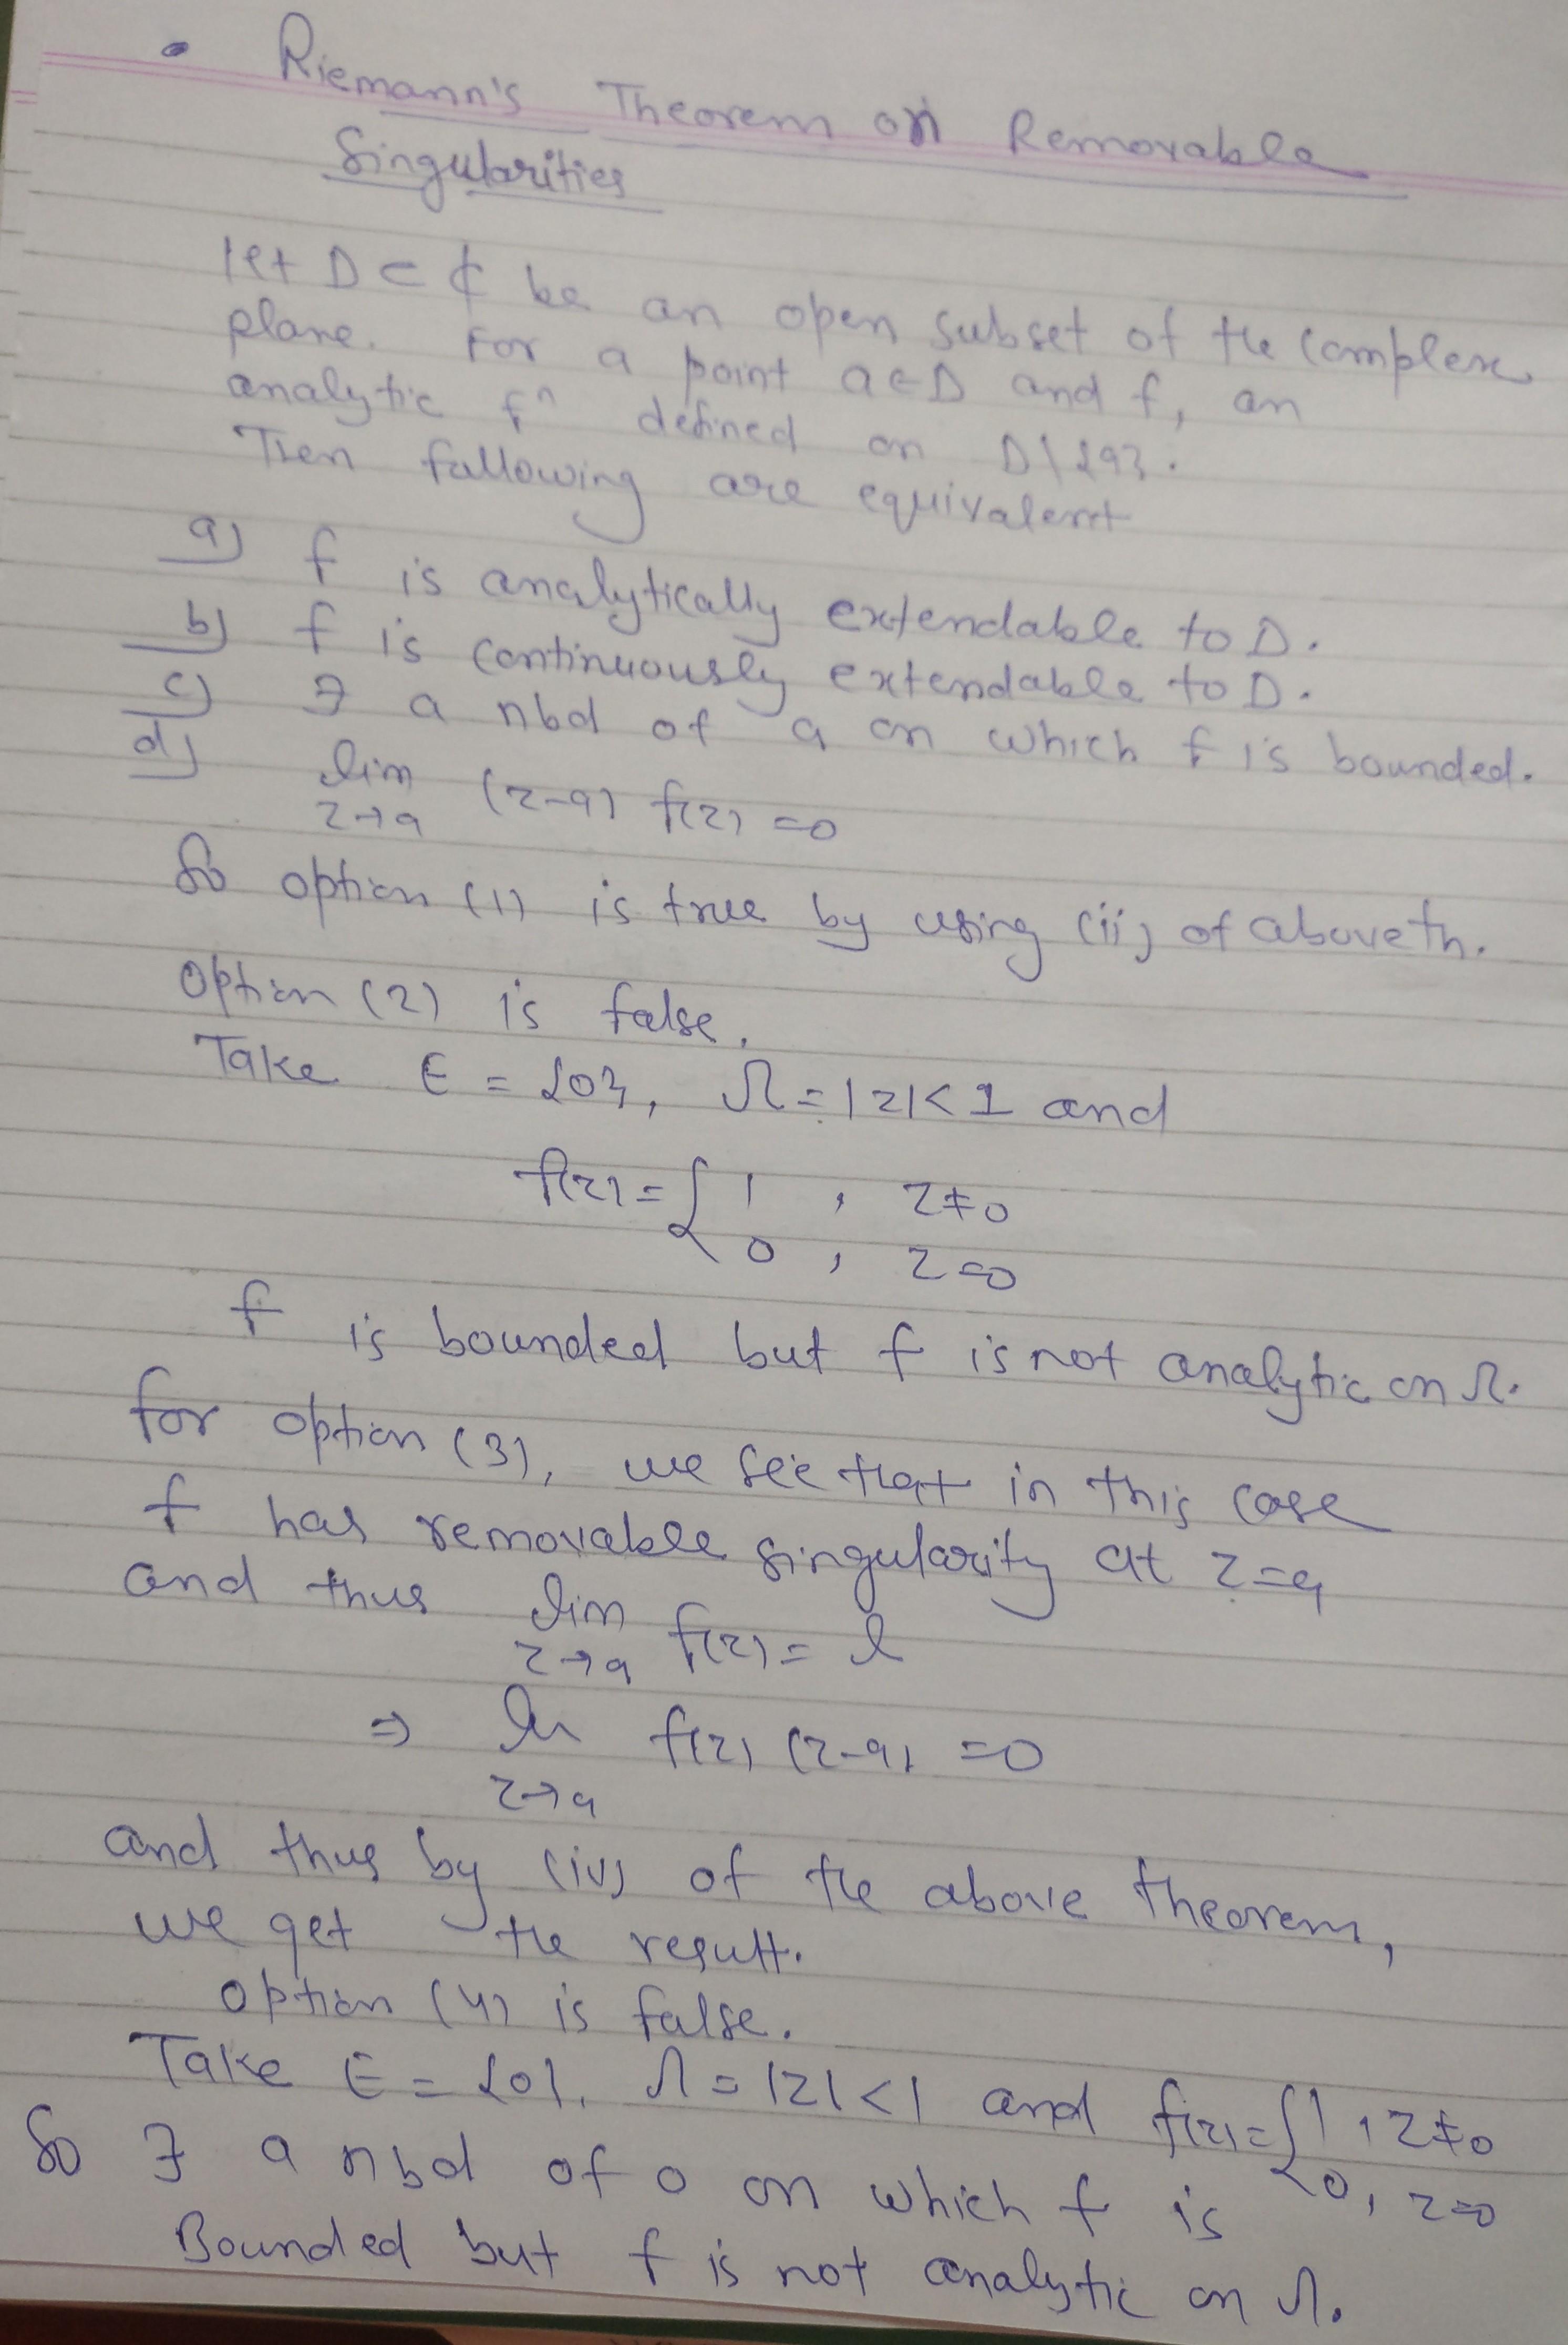 • Riemann's Theorem on Removable
Singularities
let D ⊂ ₵ be an open subset of the complex
plane. For a point a∈D and f, an
analytic fⁿ defined on D\{a}.
Then following are equivalent
a) f is analytically extendable to D.
b) f is continuously extendable to D.
c) ∃ a nbd of a on which f is bounded.
d) lim (z-a) f(z) =0
z→a
So option (1) is true by using (ii) of above th.
Option (2) is false.
Take E = {0}, Ω = |z|<1 and
f(z) = { 1 , z≠0
0 , z=0
f is bounded but f is not analytic on Ω.
for option (3), we see that in this case
f has removable singularity at z=a
and thus lim f(z) = l
z→a
⇒ lim f(z) (z-a) =0
z→a
and thus by (iv) of the above theorem,
we get the result.
option (4) is false.
Take E = {0}, Ω = |z|<1 and f(z)= { 1 , z≠0
0, z=0
So ∃ a nbd of 0 on which f is
Bounded but f is not analytic on Ω.